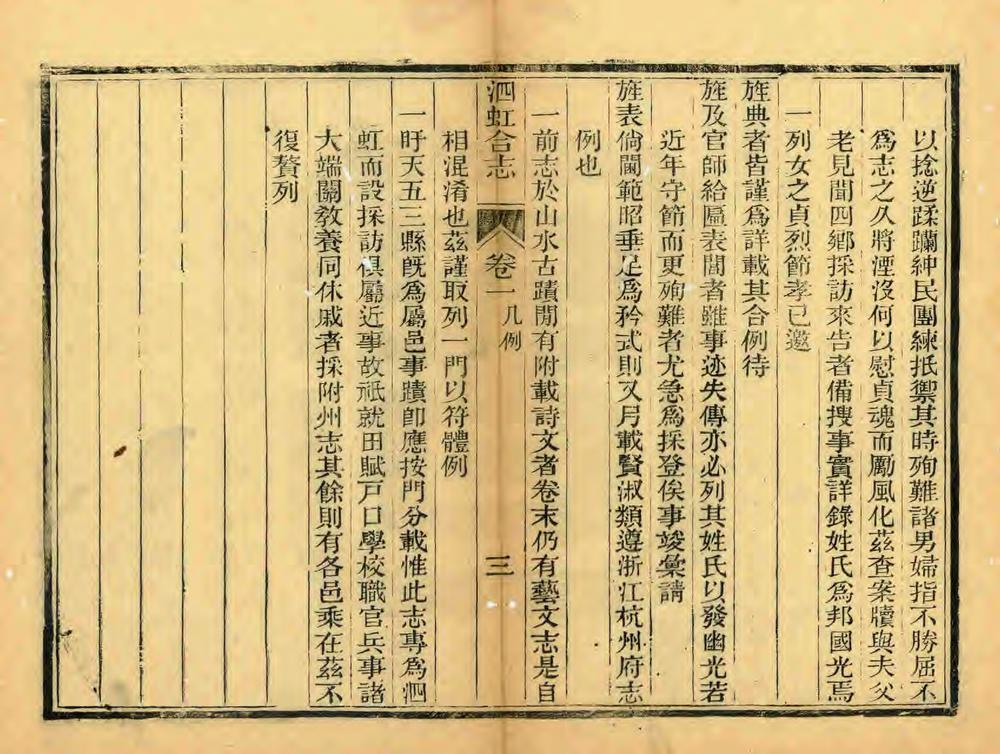 以捻逆蹂躪紳民團練抵禦其時殉難諸男婦指不勝屈不
爲志之久將湮沒何以慰貞魂而勵風化茲查案牘與夫父
老見聞四鄉採訪來告者備搜事實詳錄姓氏爲邦國光焉
一列女之貞烈節孝已邀
旌典者皆謹爲詳載其合例待
旌及官師給匾表閭者雖事迹失傳亦必列其姓氏以發幽光若
近年守節而更殉難者尤急爲採登俟事竣彙請
旌表倘閫範昭垂足爲矜式則又另載賢淑類遵浙江杭州府志
例也
一前志於山水古蹟閒有附載詩文者卷末仍有藝文志是自
泗虹合志 卷一 凡例 三
相混淆也茲謹取列一門以符體例
一盱天五三縣旣爲屬邑事蹟卽應按門分載惟此志專爲泗
虹而設採訪俱屬近事故祇就田賦戸口學校職官兵事諸
大端關敎養同休戚者採附州志其餘則有各邑乘在茲不
復贅列